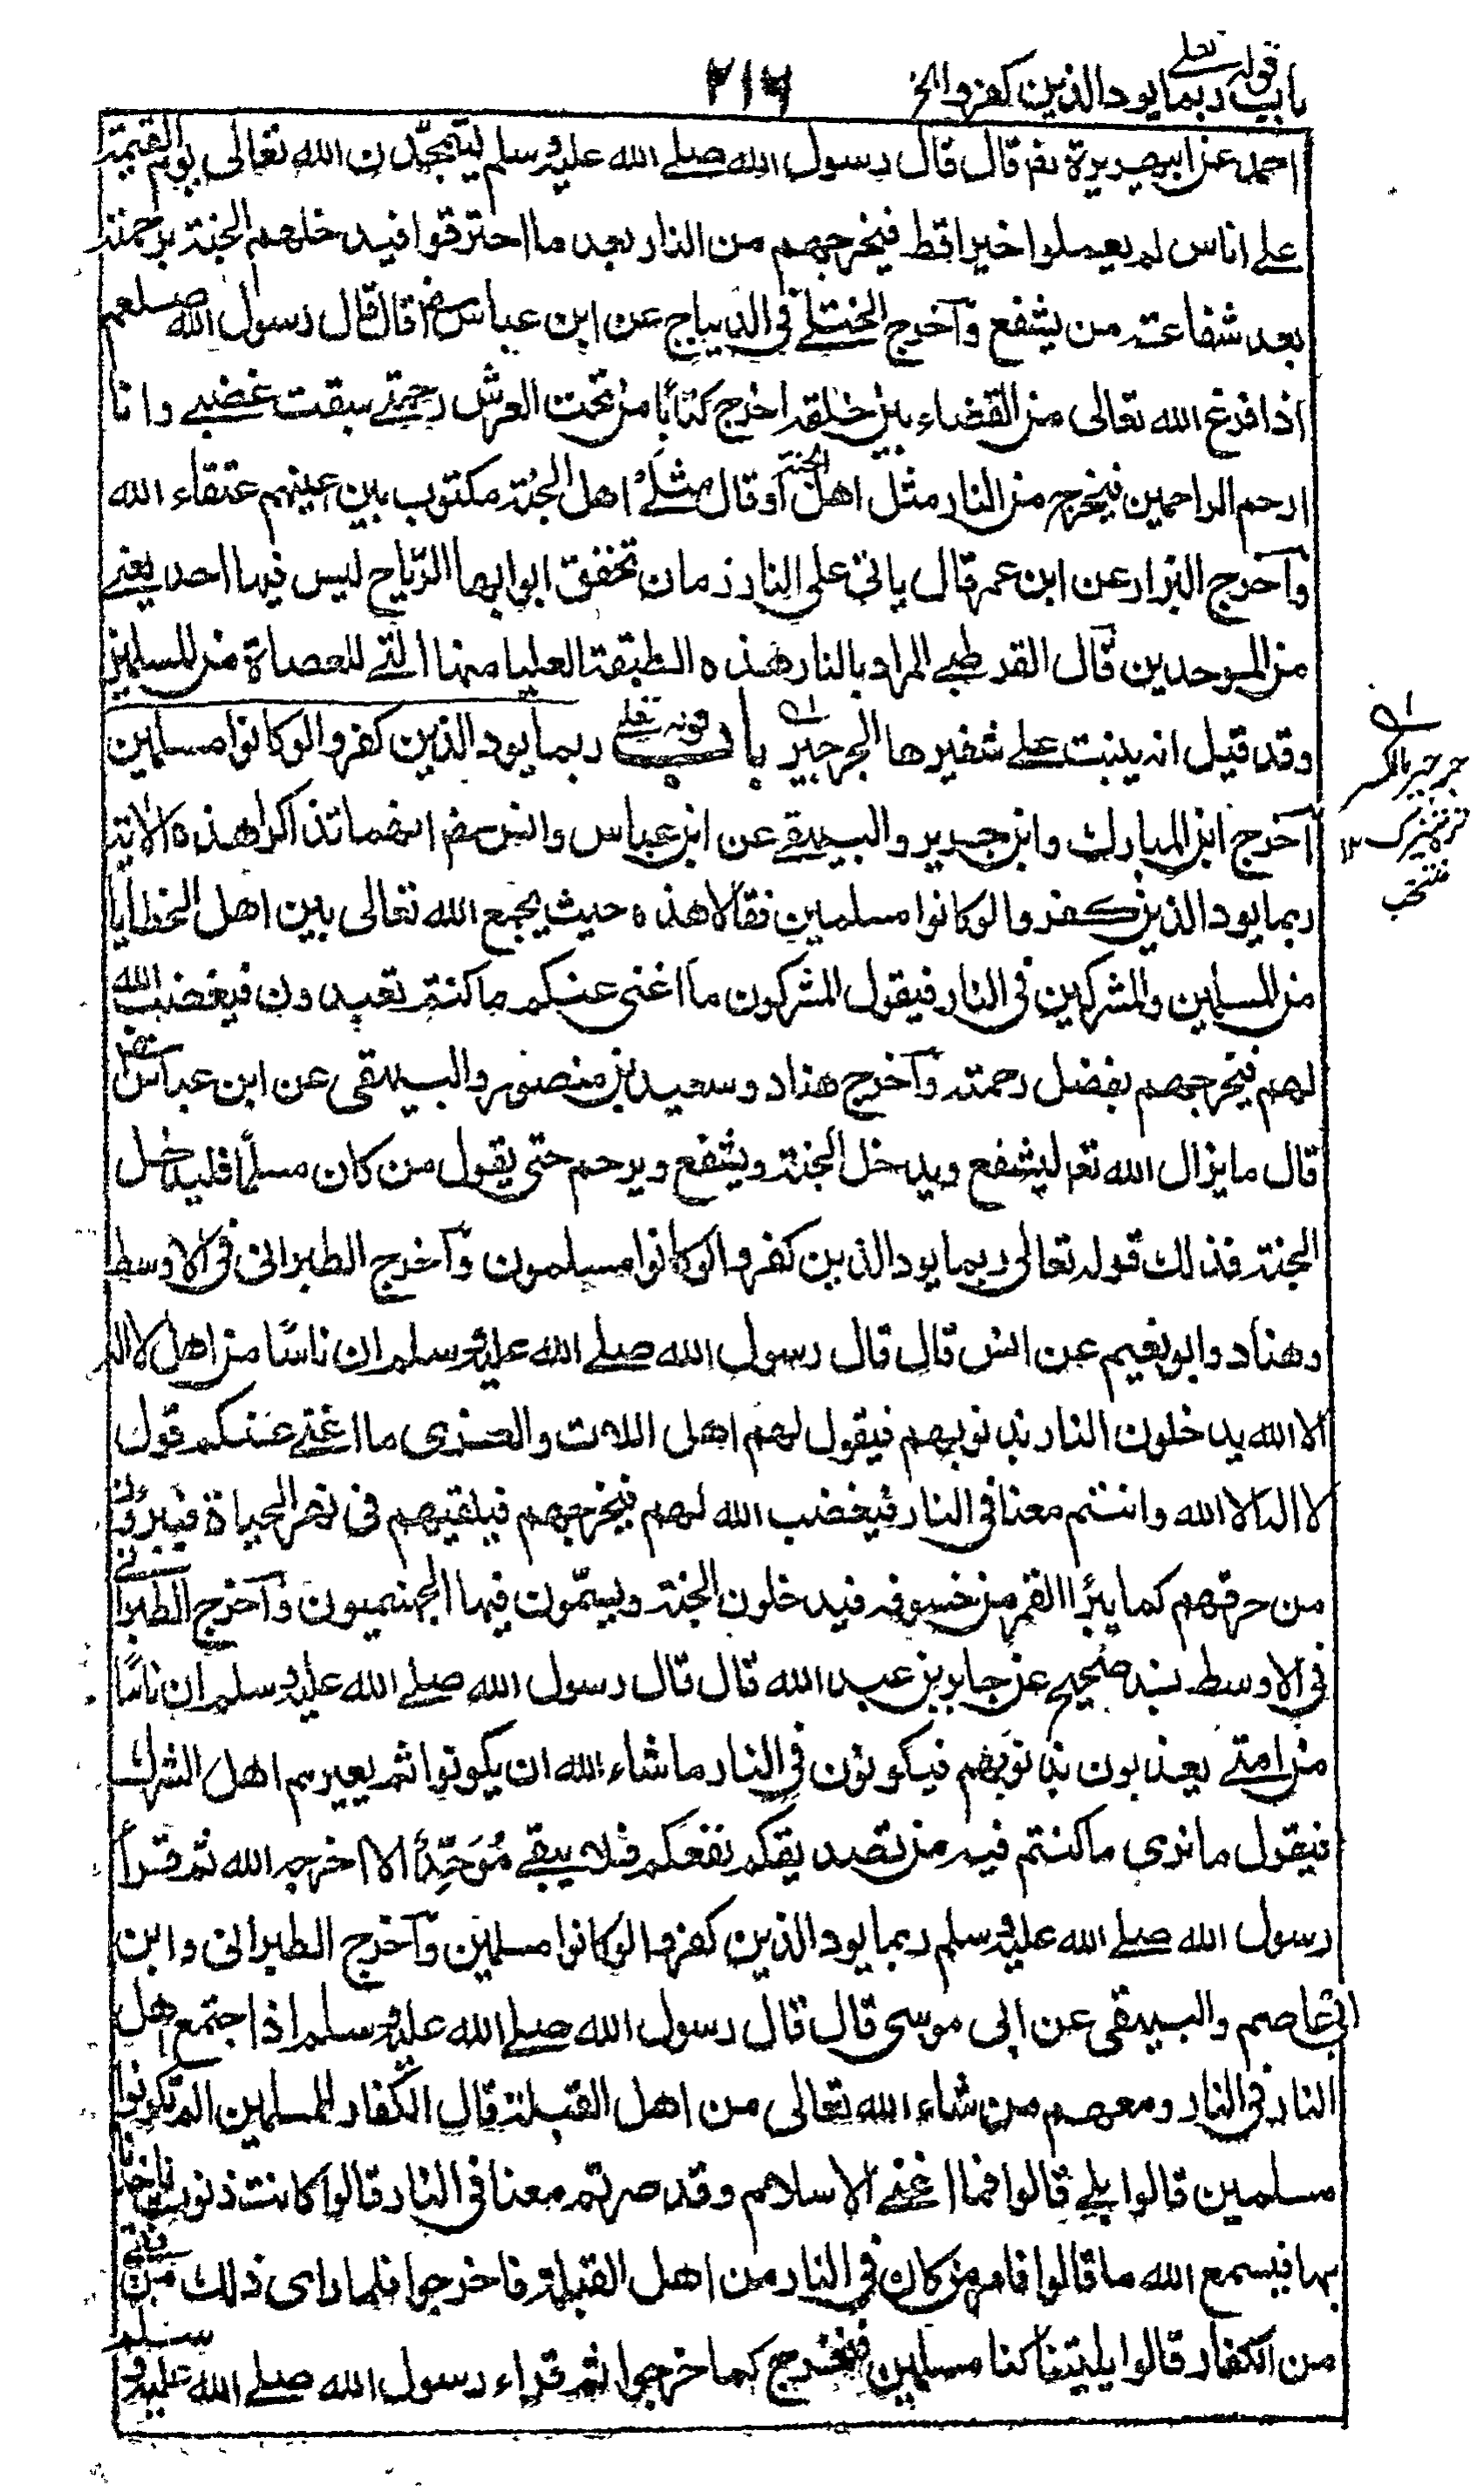 باب قوله تعلى ربما يود الذين كفروا الخ ٢١٦
احمد عن ابيهريرة رضم قال قال رسول الله صلے الله عليه وسلم ليتمجدن الله تعالى يوم القيمة
على اناس لم يعملوا خيرا قط فيخرجهم من النار بعد ما احترقوا فيدخلهم الجنة برحمته
بعد شفاعته من يشفع وآخرج الختلے في الديباج عن ابن عباس رضم قال قال رسول الله صلعم
اذا فرغ الله تعالى من القضاء بين خلقه اخرج كتابا من تحت العرش رحمتے سبقت غضبے وانا
ارحم الراحمين فيخرج من النار مثل اهل الجنة آو قال مثلے اهل الجنة مكتوب بين اعينهم عتقاء الله
وآخرج البزار عن ابن عمر قال ياتى على النار زمان تخفق ابوابها الرياح ليس فيها احد يعنے
من الموحدين قال القرطبے المراد بالنار هذه الطبقة العليا منها التے للعصاة من المسلمين
وقد قيل انه ينبت علے شفيرها الجرجير باب قوله تعلے ربما يود الذين كفروا لو كانوا مسلمين
آخرج ابن المبارك وابن جرير والبيهقے عن ابن عباس وانس رضم انهما تذاكرا هذه الاية
ربما يود الذين كفروا لو كانوا مسلمين فقالا هذه حيث يجمع الله تعالى بين اهل الخطايا
من المسلمين والمشركين فى النار فيقول المشركون ما اغنى عنكم ما كنتم تعبدون فيغضب الله
لهم فيخرجهم بفضل رحمته وآخرج هناد وسعيد بن منصور والبيهقى عن ابن عباس رضم
قال ما يزال الله تعم ليشفع ويدخل الجنة ويشفع ويرحم حتى يقول من كان مسلما فليدخل
الجنة فذالك قوله تعالى ربما يود الذين كفروا لو كانوا مسلمون وآخرج الطبرانى فى الاوسط
وهناد وابو نعيم عن انس قال قال رسول الله صلے الله عليه وسلم ان ناسا من اهل لا اله
الا الله يدخلون النار بذنوبهم فيقول لهم اهل اللات والعزى ما اغنے عنكم قول
لا اله الا الله وانتم معنا فى النار فيغضب الله لهم فيخرجهم فيلقيهم فى نهر الحياة فيبرؤن
من حرقهم كما يبرأ القمر من خسوفه فيدخلون الجنة ويسمون فيها الجهنميون وآخرج الطبرانے
فى الاوسط بسند صحيح عن جابر بن عبد الله قال قال رسول الله صلے الله عليه وسلم ان ناسا
من امتے يعذبون بذنوبهم فيكونون فى النار ما شاء الله ان يكونوا ثم يعيرهم اهل الشرك
فيقول ما نرى ما كنتم فيه من تصديقكم نفعكم فلا يبقے مُوَحِّدًا الا اخرجه الله ثم قرأ
رسول الله صلے الله عليه وسلم ربما يود الذين كفروا لو كانوا مسلمين وآخرج الطبرانى وابن
ابى عاصم والبيهقى عن ابى موسى قال قال رسول الله صلے الله عليه وسلم اذا اجتمع اهل
النار فى النار ومعهم من شاء الله تعالى من اهل القبلة قال الكفار للمسلمين الم تكونوا
مسلمين قالوا بلے قالوا فما اغنے الاسلام وقد صرتم معنا فى النار قالوا كانت ذنوب فاخذنا
بها فيسمع الله ما قالوا فامر من كان فى النار من اهل القبلة فاخرجوا فلما راى ذلك من بقے
من الكفار قالوا يليتنا كنا مسلمين فنخرج كما خرجوا ثم قراء رسول الله صلے الله عليه وسلم
جرجير بالكسر
تره تيزك ١٢
منتخب